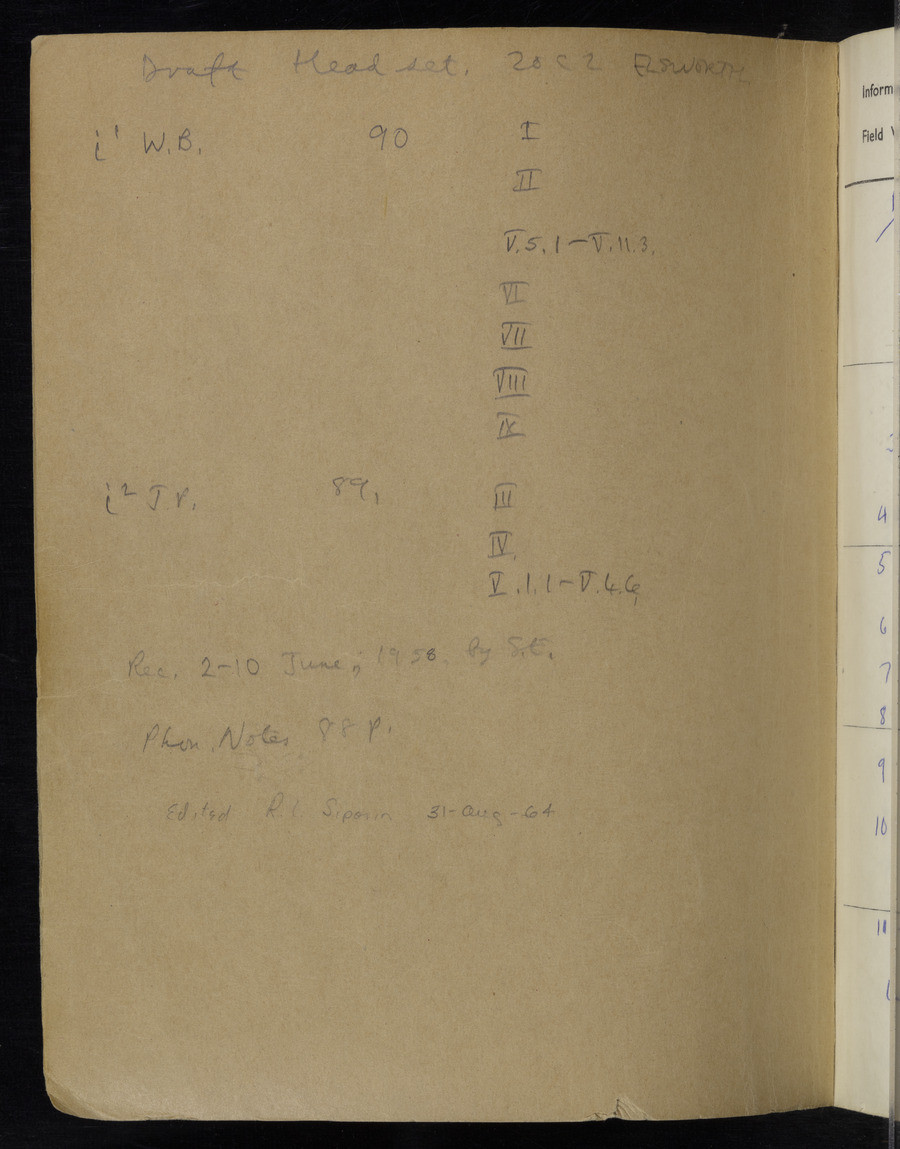 Draft Head set. 20 C 2 ELSWORTH
i¹ W.B. 90 I
II
V.5.1–V.11.3.
VI
VII
VIII
IX
i² J P. 89, III
IV.
V.1.1–V.4.6,
Rec. 2–10 June, 1958. by S.E.
Phon. Notes 88 p.
Edited R.L. 31-Aug-64
Inform
Field
4
5
6
7
8
9
10
11